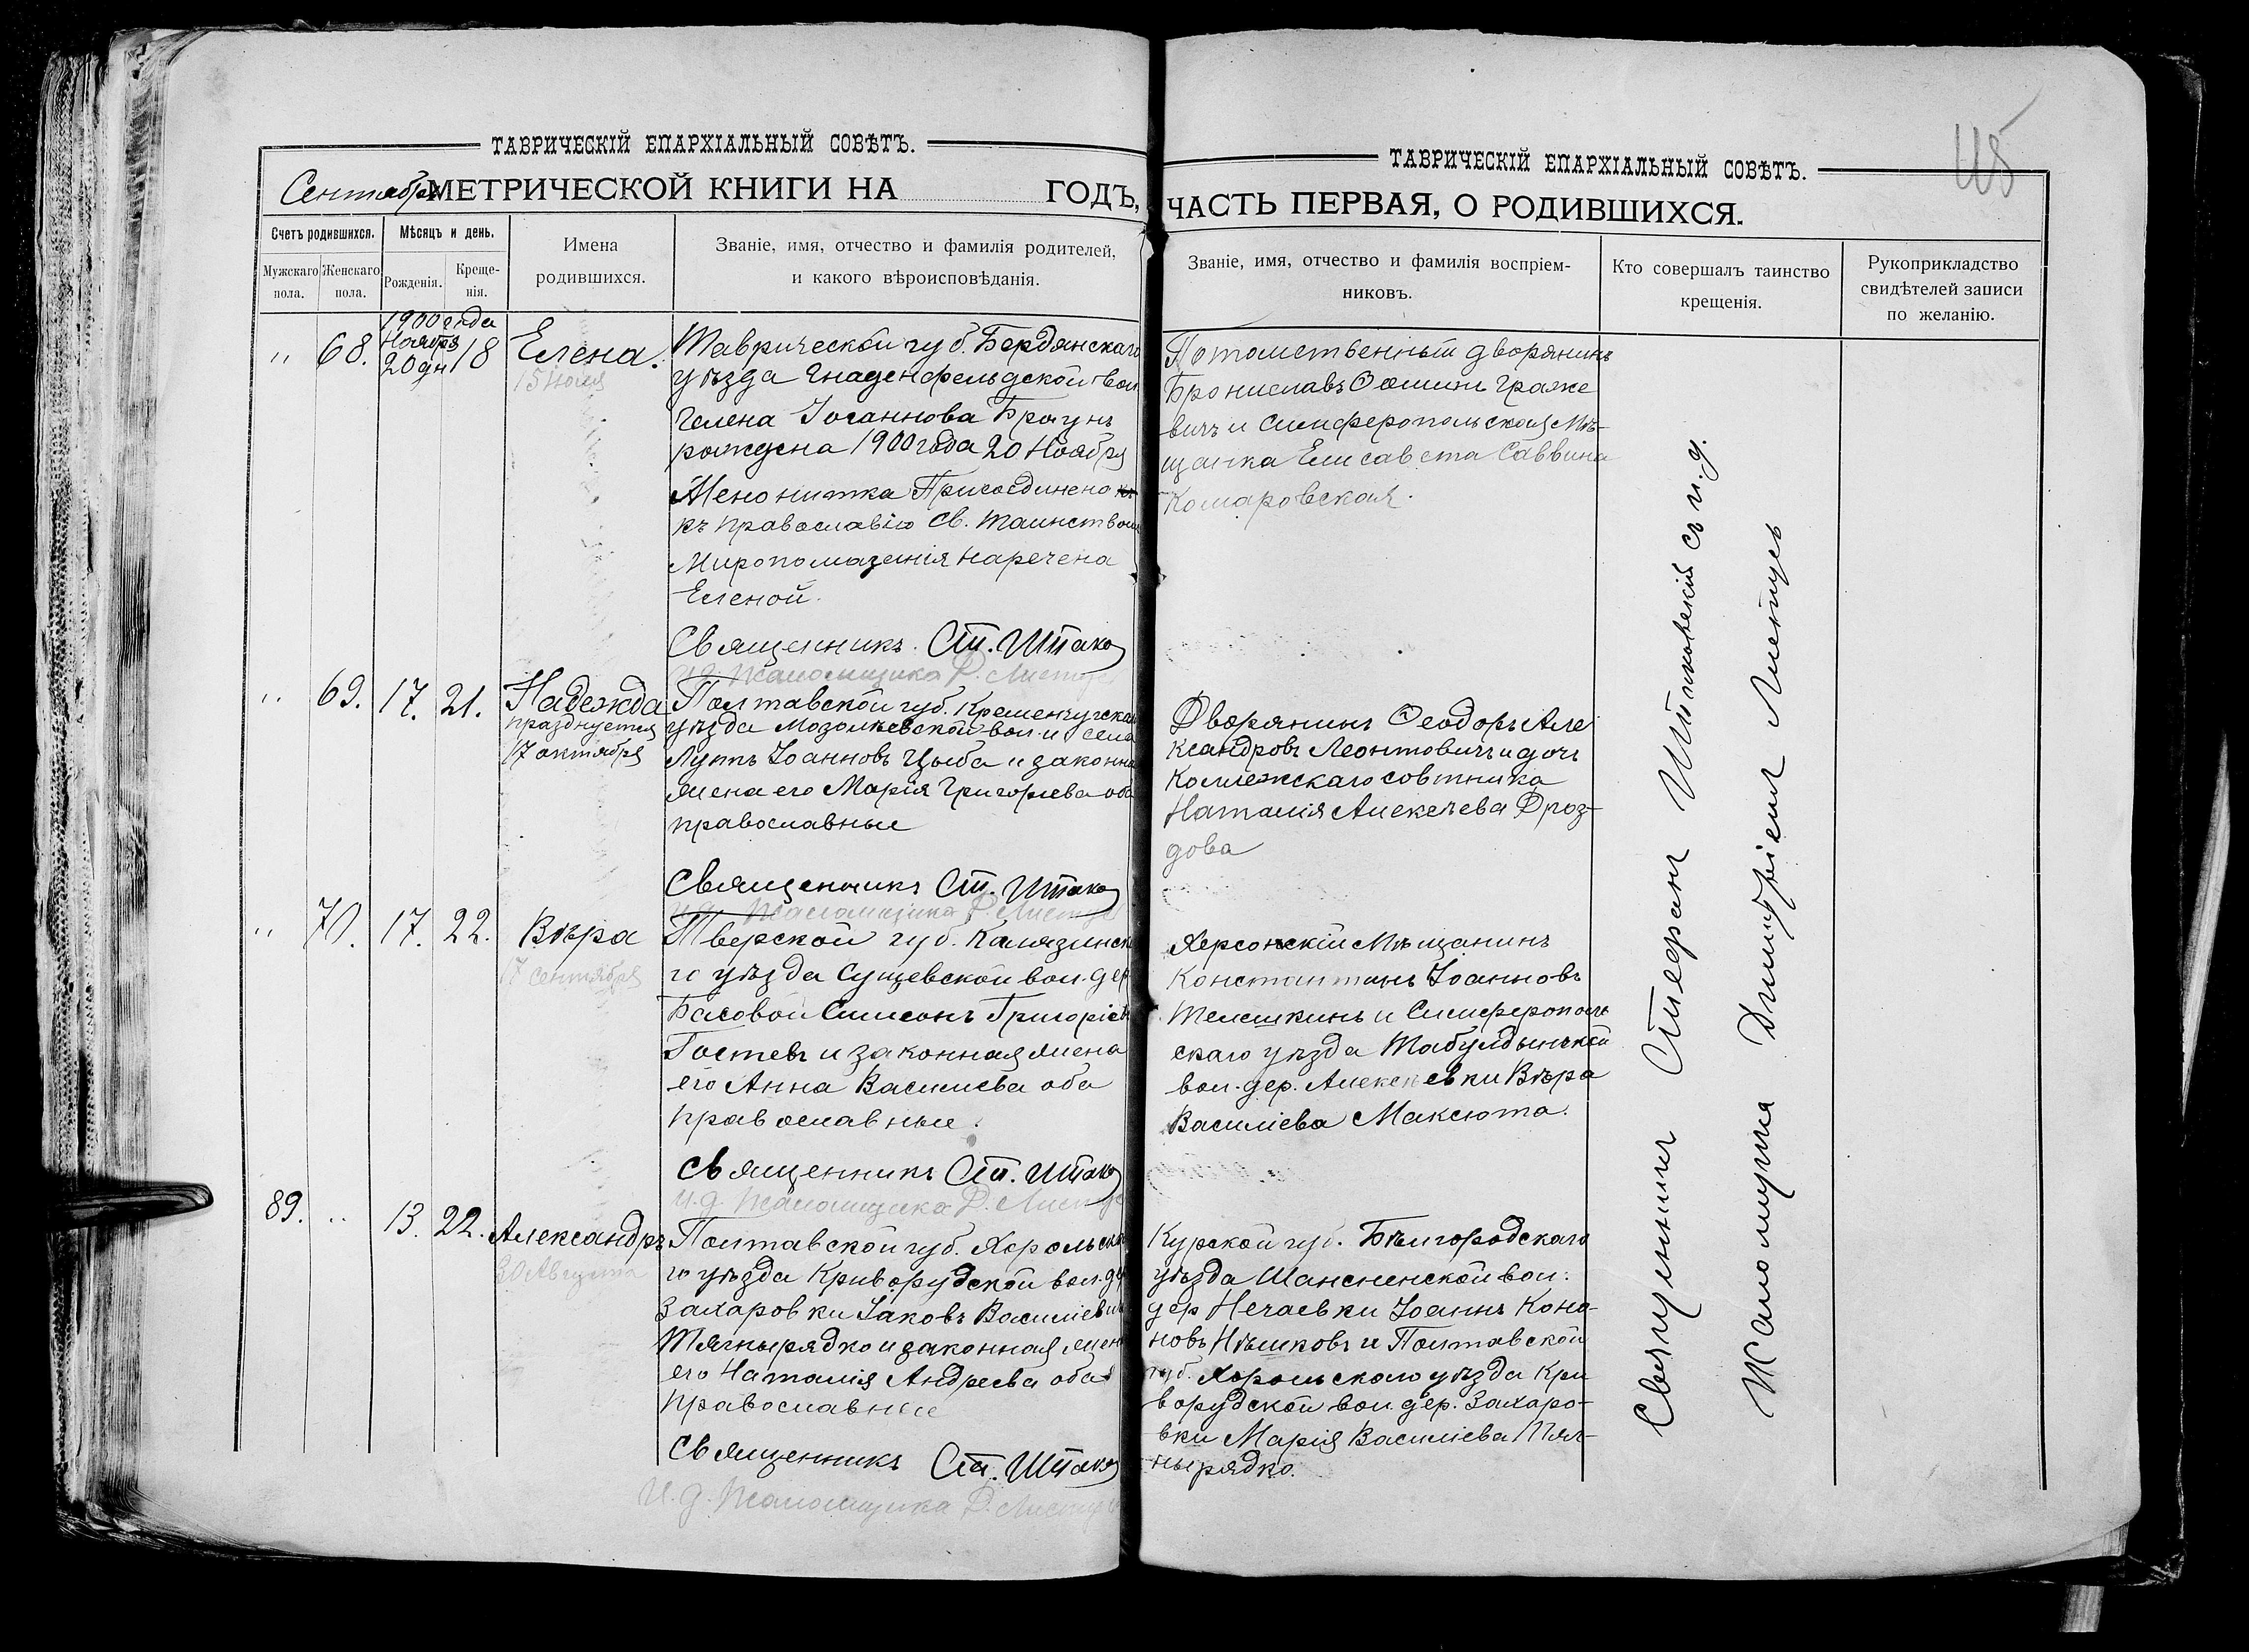 ТАВРИЧЕСКІЙ ЕПАРХІАЛЬНЫЙ СОВѢТЪ.
Сентябрь МЕТРИЧЕСКОЙ КНИГИ НА ГОДЪ,
Счетъ родившихся.
Мужскаго пола.
Женскаго пола.
Мѣсяцъ и день.
Рожденія.
Креще-
нія.
Имена
родившихся.
Званіе, имя, отчество и фамилія родителей,
и какого вѣроисповѣданія.
„ 68.
1900 года
Ноября
20 дн
18
Елена.
15 Июля
Таврической губ. Бердянскаго
уѣзда Гнаденфельдской вол
Гелена Іоганнова Браунъ
рождена 1900 года 20 Ноября
Менонитка Присоединено
къ православію Св. таинствомъ
Миропомазанія наречена
Еленой.
Священникъ Ст. Штако
и.д. псаломщика Д. Листц
„ 69. 17. 21.
Надежда
празднуется
17 октября
Полтавской губ. Кременчугска
уѣзда вол. и села
Іоанновъ Цыба и законна
жена его Марія Григорьева оба
православные
Священникъ Ст. Штако
и.д. псаломщика Д. Листц
„ 70. 17. 22.
Вѣра
17 сентября
Тверской губ. Калязинска
го уѣзда Сущевской вол. дер
Басовой Симеонъ Григоріев
Гостевъ и законная жена
его Анна Василиева оба
православные.
Священникъ Ст. Штако
и.д. псаломщика Д. Листц
89. „ 13. 22.
Александръ
30 Августа
Полтавской губ. Хорольска
го уѣзда Криворудской вол. де
Захаровки Іаковъ Василіевич
и законная жена
его Наталія Андреева оба
православные
Священникъ Ст. Штако
И.д. псаломщика Д. Листц
115
ТАВРИЧЕСКІЙ ЕПАРХІАЛЬНЫЙ СОВѢТЪ.
ЧАСТЬ ПЕРВАЯ, О РОДИВШИХСЯ.
Званіе, имя, отчество и фамилія воспріем-
никовъ.
Кто совершалъ таинство
крещенія.
Рукоприкладство
свидѣтелей записи
по желанію.
Потомственный дворянинъ
Брониславъ Граже
вичъ и Симферопольская Мѣ-
щанка Елисавета Саввина
Комаровская.
Дворянинъ Ѳеодоръ Але
ксандровъ Леонтовичъ и дочь
Коллежскаго совтника
Наталія Алексѣева Дроз-
дова
Херсонскій Мѣщанинъ
Константинъ Іоанновъ
Телешкинъ и Симферополь
скаго уѣзда Табулдынской
вол. дер. Алексѣевки Вѣра
Василіева Максюта.
Курской губ. Бѣлгородскаго
уѣзда вол.
дер Нечаевки Іоаннъ Коно-
новъ и Полтавской
губ. Хорольскаго уѣзда Кри
ворудской вол. дер. Захаро-
вки Марія Василіева Тяг-
нырядко.
Священникъ Стефанъ Штаковскій съ и.д.
Псаломщика Димитріемъ